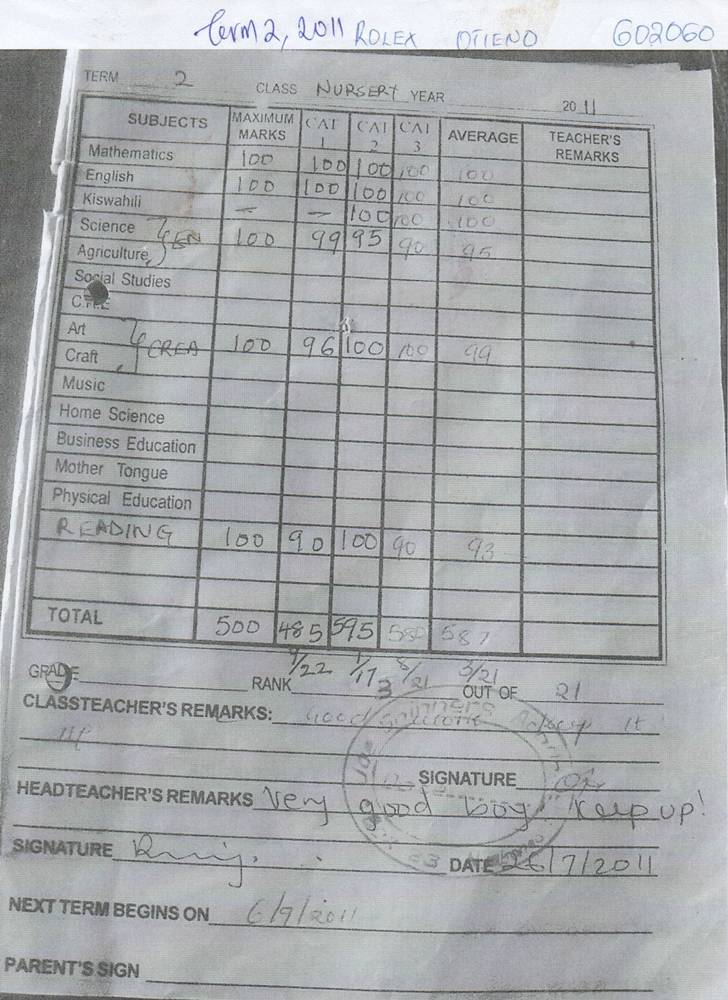 Term 2, 2011 ROLEX OTIENO G02060
TERM 2 CLASS NURSERY YEAR 2011
SUBJECTS MAXIMUM MARKS CAT 1 CAT 2 CAT 3 AVERAGE TEACHER'S REMARKS
Mathematics 100 100 100 100 100
English 100 100 100 100 100
Kiswahili - - 100 100 100
Science } GEN 100 99 95 90 95
Agriculture
Social Studies
C.R.E
Art } CREA 100 96 100 100 99
Craft
Music
Home Science
Business Education
Mother Tongue
Physical Education
READING 100 90 100 90 93
TOTAL 500 485 595 580 587
9/22 1/17 8/21 3/21
GRADE RANK 3 OUT OF 21
CLASSTEACHER'S REMARKS: Good Keep it
up
SIGNATURE
HEADTEACHER'S REMARKS Very good boy! Keep up!
SIGNATURE DATE 26/7/2011
NEXT TERM BEGINS ON 6/9/2011
PARENT'S SIGN